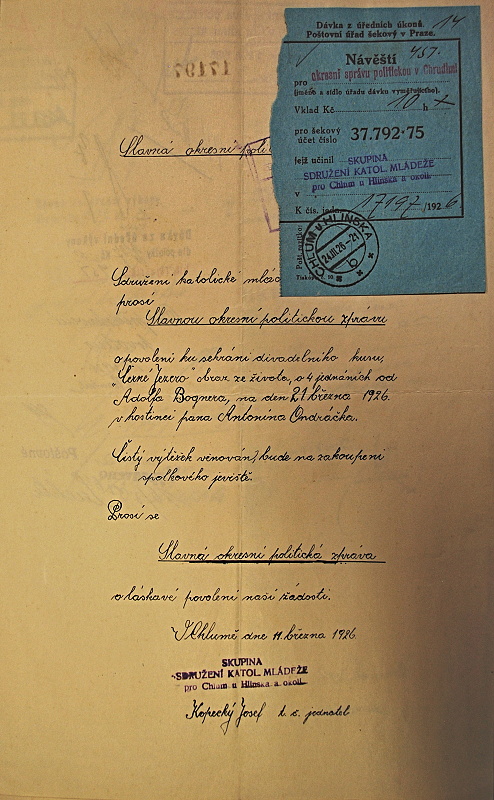 Dávka z úředních úkonů. 14
Poštovní úřad šekový v Praze.
Návěští 457.
pro okresní správu politickou v Chrudimi
(jméno a sídlo úřadu dávku vyměřujícího).
Vklad Kč 10 h
pro šekový
účet číslo 37.792·75
jejž učinil SKUPINA
SDRUŽENÍ KATOL. MLÁDEŽE
pro Chlum u Hlinska a okolí.
v
K čís. jedn. 17197/1926
CHLUM u HLINSKA
24.III.26-21
b
17197
Slavná okresní polit
Sdružení katolické mlád
prosí
Slavnou okresní politickou zprávu
o povolení ku sehrání divadelního kusu,
"Černé Jezero" obraz ze života, o 4 jednáních od
Adolfa Bognera, na den 21 března 1926.
v hostinci pana Antonína Ondráčka.
Čistý výtěžek věnován, bude na zakoupení
spolkového jeviště.
Prosí se
Slavná okresní politická zpráva
o láskavé povolení naší žádosti.
V Chlumě dne 11. března 1926.
SKUPINA
SDRUŽENÍ KATOL. MLÁDEŽE
pro Chlum u Hlinska a okolí.
Kopecký Josef t. č. jednatel